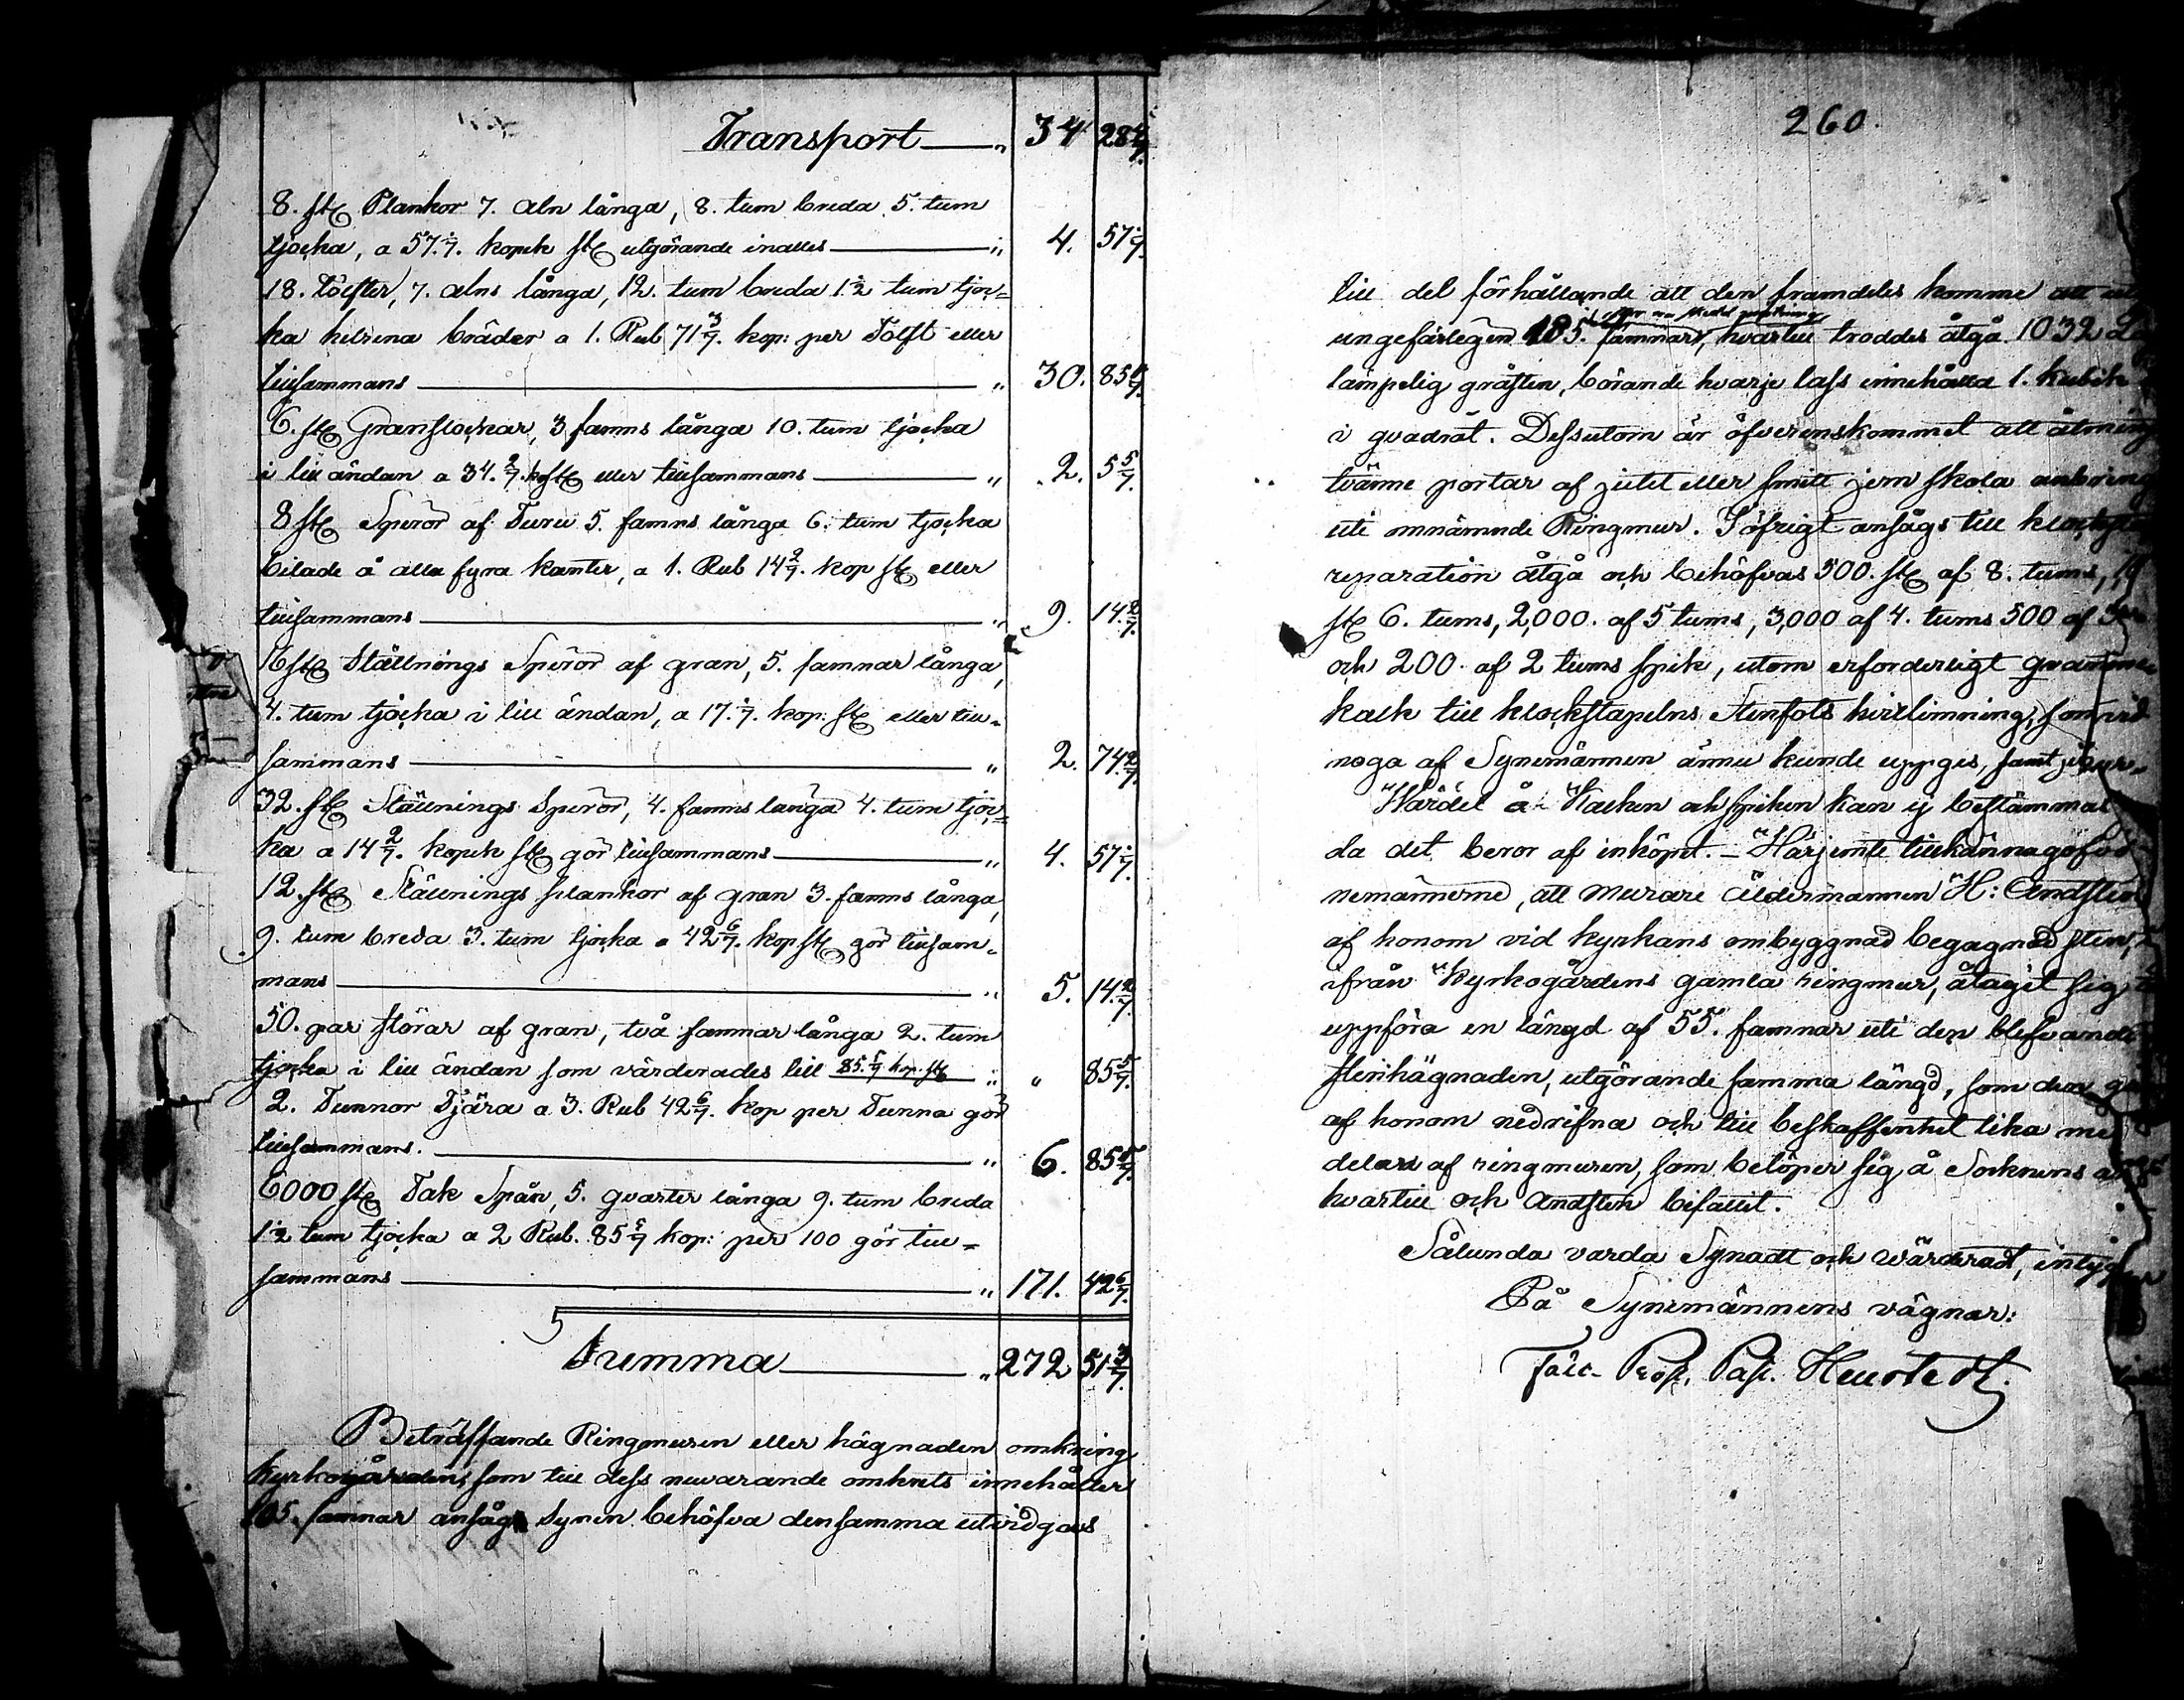 Transport „ 34 28 4/7.
8. st. Plankor 7. aln långa, 8. tum breda 5. tum
tjocka, a 57 1/7. kopek st. utgörande inalles „ 4. 57 1/7.
18. tölfter, 7. alns långa, 12. tum breda 1 1/2 tum tjoc=
ka helrena bräder a 1. Rub 71 3/7. kop: per Tolft eller
tillsammans „ 30. 85 5/7.
6. st. Granstockar, 3 famns långa 10. tum tjocka
i lill ändan a 34. 2/7. kop st. eller tillsammans „ 2. 5 5/7.
8 st. Speror af Furu 5. famns långa 6. tum tjocka
bilade å alla fyra kanter, a 1. Rub 14 2/7. kop st. eller
tillsammans „ 9. 14 2/7.
16 st. Ställnings Speror af gran, 5. famnar långa,
4. tum tjocka i lill ändan, a 17. 1/7. kop: st. eller till=
sammans „ 2. 74 2/7.
32. st. Ställnings Speror, 4. famns långa 4. tum tjoc=
ka a 14 2/7. kopek st. gör tillsammans „ 4. 57 1/7.
12. st. Ställnings plankor af gran 3. famns långa,
9. tum breda 3. tum tjocka a 42 6/7. kop st. gör tillsam=
mans „ 5. 14 2/7.
50. par störar af gran, två famnar långa 2. tum
tjocka i lill ändan som värderades till 85. 5/7 kop. st. „ „ 85 5/7.
2. Tunnor Tjära a 3. Rub 42 6/7. kop per Tunna gör
tillsammans. „ 6. 85 5/7.
6000 st. Tak Spån, 5. qvarter långa 9. tum breda
1/2 tum tjocka a 2 Rub. 85 5/7 kop: per 100 gör till=
sammans „ 171. 42 6/7.
Summa „ 272 51 3/7.
Beträffande Ringmuren eller hägnaden omkring
Kyrkogården, som till dess nuvarande omkrets innehåller
165. famnar ansågs Synen behöfva densamma utvidgas
260.
till det förhållande att den framdeles komme att
ungefärligen 185. famnar, hvartill troddes åtgå 1032
lämpelig gråsten, börande hvarje lass innehålla 1. kubik
i qvadrat. Dessutom är öfverenskommet att åtminst
tvänne portar af gjutit eller smitt jern skola anbring
uti omnämnde Ringmur. I öfrigt ansågs till
reparation åtgå och behöfvas 500. st. af 8. tums,
st. 6. tums, 2,000. af 5 tums, 3,000 af 4. tums 500 af
och 200. af 2 tums spik, utom erforderligt
kalk till klockstapelns Stenfots hvitlimning, som
noga af Synemännen ännu kunde uppges, samt
Wärdet å Kalken och spiken kan ej bestämmas
da det beror af inköpet. – Härjemte tillkännagöf
nemännerne, att Murare Åldermannen H: Andsten
af honom vid kyrkans ombyggnad begagnad sten,
ifrån Kyrkogårdens gamla ringmur, åtagit sig
uppföra en längd af 55. famnar uti den blifvande
stenhägnaden, utgörande samma längd, som den
af honom nedrifna och till beskaffenhet lika
delare af ringmuren, som belöper sig å Socknens
hvartill och Andsten bifallit.
Sålunda varda Synadt och wärderadt, intygar
På Synemännens vägnar: